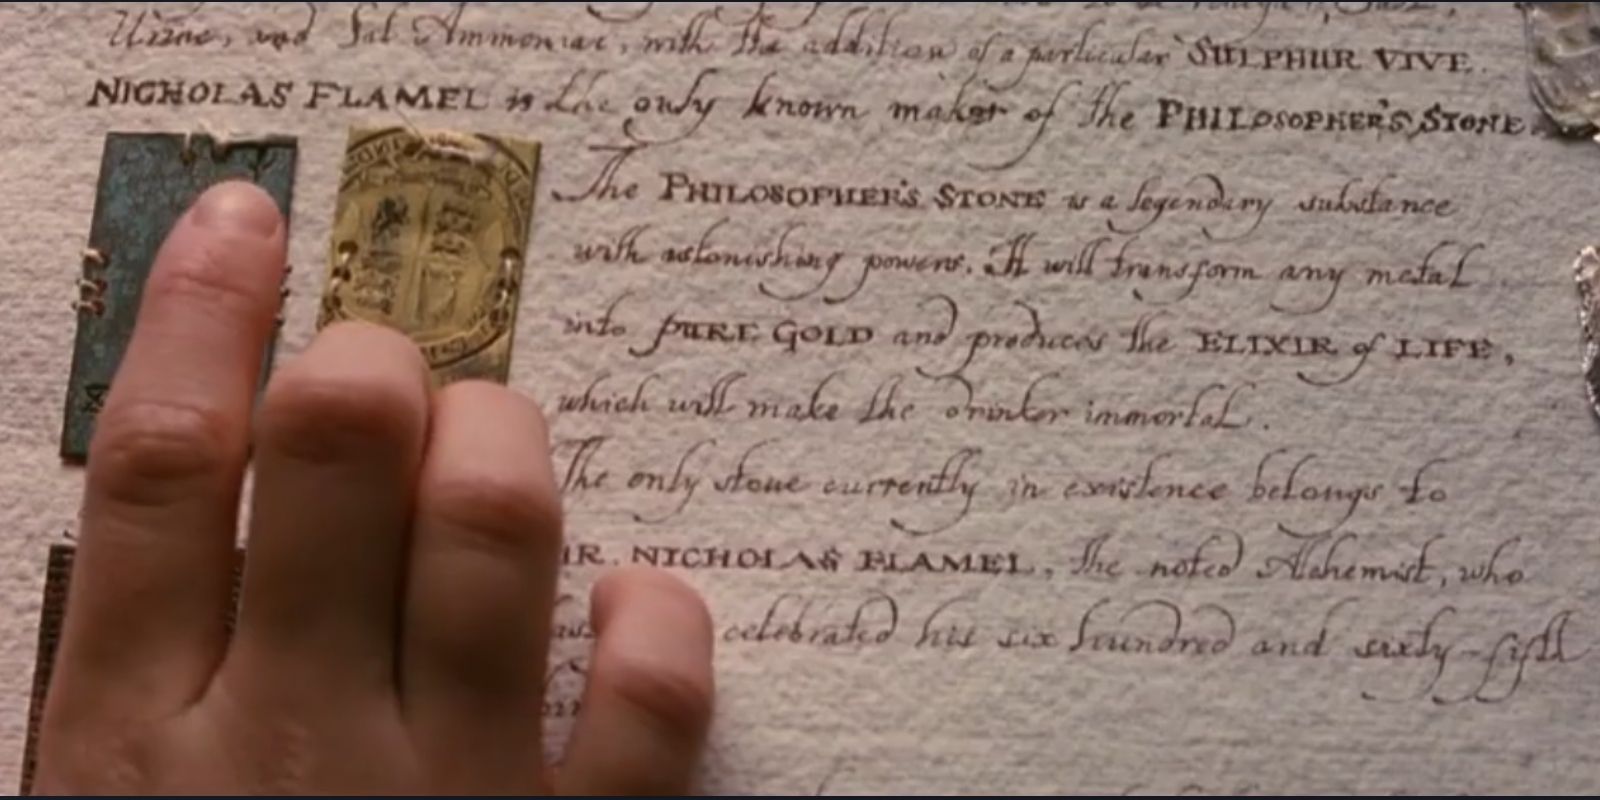 Urine, and Sal Ammoniac, with the addition of a particular SULPHUR VIVE.
NICHOLAS FLAMEL is the only known maker of the PHILOSOPHER'S STONE.
The PHILOSOPHER'S STONE is a legendary substance
with astonishing powers. It will transform any metal
into PURE GOLD and produces the ELIXIR of LIFE,
which will make the drinker immortal.
The only stone currently in existence belongs to
MR. NICHOLAS FLAMEL, the noted Alchemist, who
celebrated his six hundred and sixty-fifth